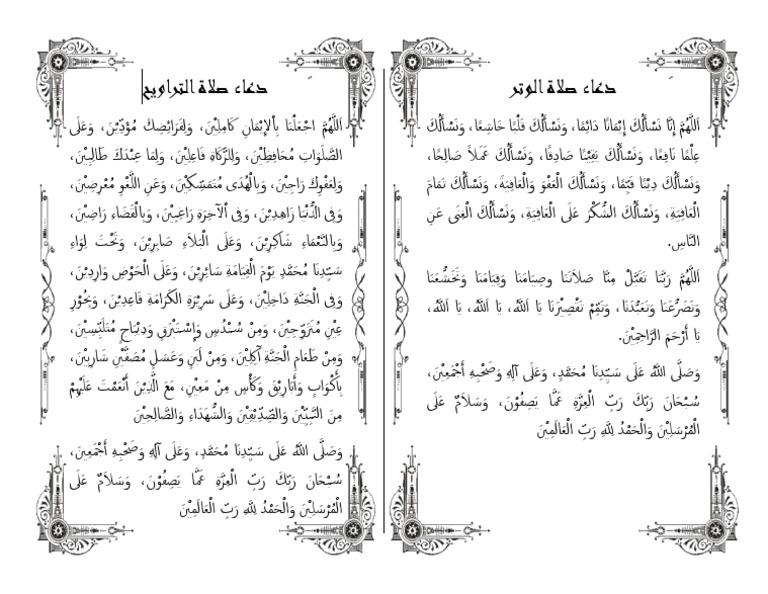 دعاء صلاة الوتر
اَللّٰهُمَّ إِنَّا نَسْأَلُكَ إِيْمَانًا دَائِمًا، وَنَسْأَلُكَ قَلْبًا خَاشِعًا، وَنَسْأَلُكَ
عِلْمًا نَافِعًا، وَنَسْأَلُكَ يَقِيْنًا صَادِقًا، وَنَسْأَلُكَ عَمَلاً صَالِحًا،
وَنَسْأَلُكَ دِيْنًا قَيِّمًا، وَنَسْأَلُكَ الْعَفْوَ وَالْعَافِيَةَ، وَنَسْأَلُكَ تَمَامَ
الْعَافِيَةِ، وَنَسْأَلُكَ الشُّكْرَ عَلَى الْعَافِيَةِ، وَنَسْأَلُكَ الْغِنَى عَنِ
النَّاسِ.
اَللّٰهُمَّ رَبَّنَا تَقَبَّلْ مِنَّا صَلاَتَنَا وصِيَامَنَا وَقِيَامَنَا وَتَخَشُّعَنَا
وَتَضَرُّعَنَا وَتَعَبُّدَنَا، وَتَمِّمْ تَقْصِيْرَنَا يَا اَللهُ، يَا اَللهُ، يَا اَللهُ،
يَا أَرْحَمَ الرَّاحِمِيْنَ.
وَصَلَّى اللهُ عَلَى سَيِّدِنَا مُحَمَّدٍ، وَعَلَى آلِهِ وَصَحْبِهِ أَجْمَعِيْنَ،
سُبْحَانَ رَبِّكَ رَبِّ الْعِزَّةِ عَمَّا يَصِفُوْنَ، وَسَلاَمٌ عَلَى
الْمُرْسَلِيْنَ وَالْحَمْدُ لِلّٰهِ رَبِّ الْعَالَمِيْنَ
دعاء صلاة التراويح
اَللّٰهُمَّ اجْعَلْنَا بِاْلإِيْمَانِ كَامِلِيْنَ، وَلِفَرَائِضِكَ مُؤَدِّيْنَ، وَعَلَى
الصَّلَوَاتِ مُحَافِظِيْنَ، وَلِلزَّكَاةِ فَاعِلِيْنَ، وَلِمَا عِنْدَكَ طَالِبِيْنَ،
وَلِعَفْوِكَ رَاجِيْنَ، وَبِالْهُدَى مُتَمَسِّكِيْنَ، وَعَنِ اللَّغْوِ مُعْرِضِيْنَ،
وَفِى الدُّنْيَا زَاهِدِيْنَ، وَفِى اْلآخِرَةِ رَاغِبِيْنَ، وَبِالْقَضَاءِ رَاضِيْنَ،
وَبِالنَّعْمَاءِ شَاكِرِيْنَ، وَعَلَى الْبَلاَءِ صَابِرِيْنَ، وَتَحْتَ لِوَاءِ
سَيِّدِنَا مُحَمَّدٍ يَوْمَ الْقِيَامَةِ سَائِرِيْنَ، وَعَلَى الْحَوْضِ وَارِدِيْنَ،
وَفِى الْجَنَّةِ دَاخِلِيْنَ، وَعَلَى سَرِيْرَةِ الْكَرَامَةِ قَاعِدِيْنَ، وَبِحُوْرٍ
عِيْنٍ مُتَزَوِّجِيْنَ، وَمِنْ سُنْدُسٍ وَإِسْتَبْرَقٍ وَدِيْبَاجٍ مُتَلَبِّسِيْنَ،
وَمِنْ طَعَامِ الْجَنَّةِ آكِلِيْنَ، وَمِنْ لَبَنٍ وَعَسَلٍ مُصَفَّيْنِ شَارِبِيْنَ،
بِأَكْوَابٍ وَأَبَارِيْقَ وَكَأْسٍ مِنْ مَعِيْنٍ، مَعَ الَّذِيْنَ أَنْعَمْتَ عَلَيْهِمْ
مِنَ النَّبِيِّيْنَ وَالصِّدِّيْقِيْنَ وَالشُّهَدَاءِ وَالصَّالِحِيْنَ
وَصَلَّى اللهُ عَلَى سَيِّدِنَا مُحَمَّدٍ، وَعَلَى آلِهِ وَصَحْبِهِ أَجْمَعِيْنَ،
سُبْحَانَ رَبِّكَ رَبِّ الْعِزَّةِ عَمَّا يَصِفُوْنَ، وَسَلاَمٌ عَلَى
الْمُرْسَلِيْنَ وَالْحَمْدُ لِلّٰهِ رَبِّ الْعَالَمِيْنَ